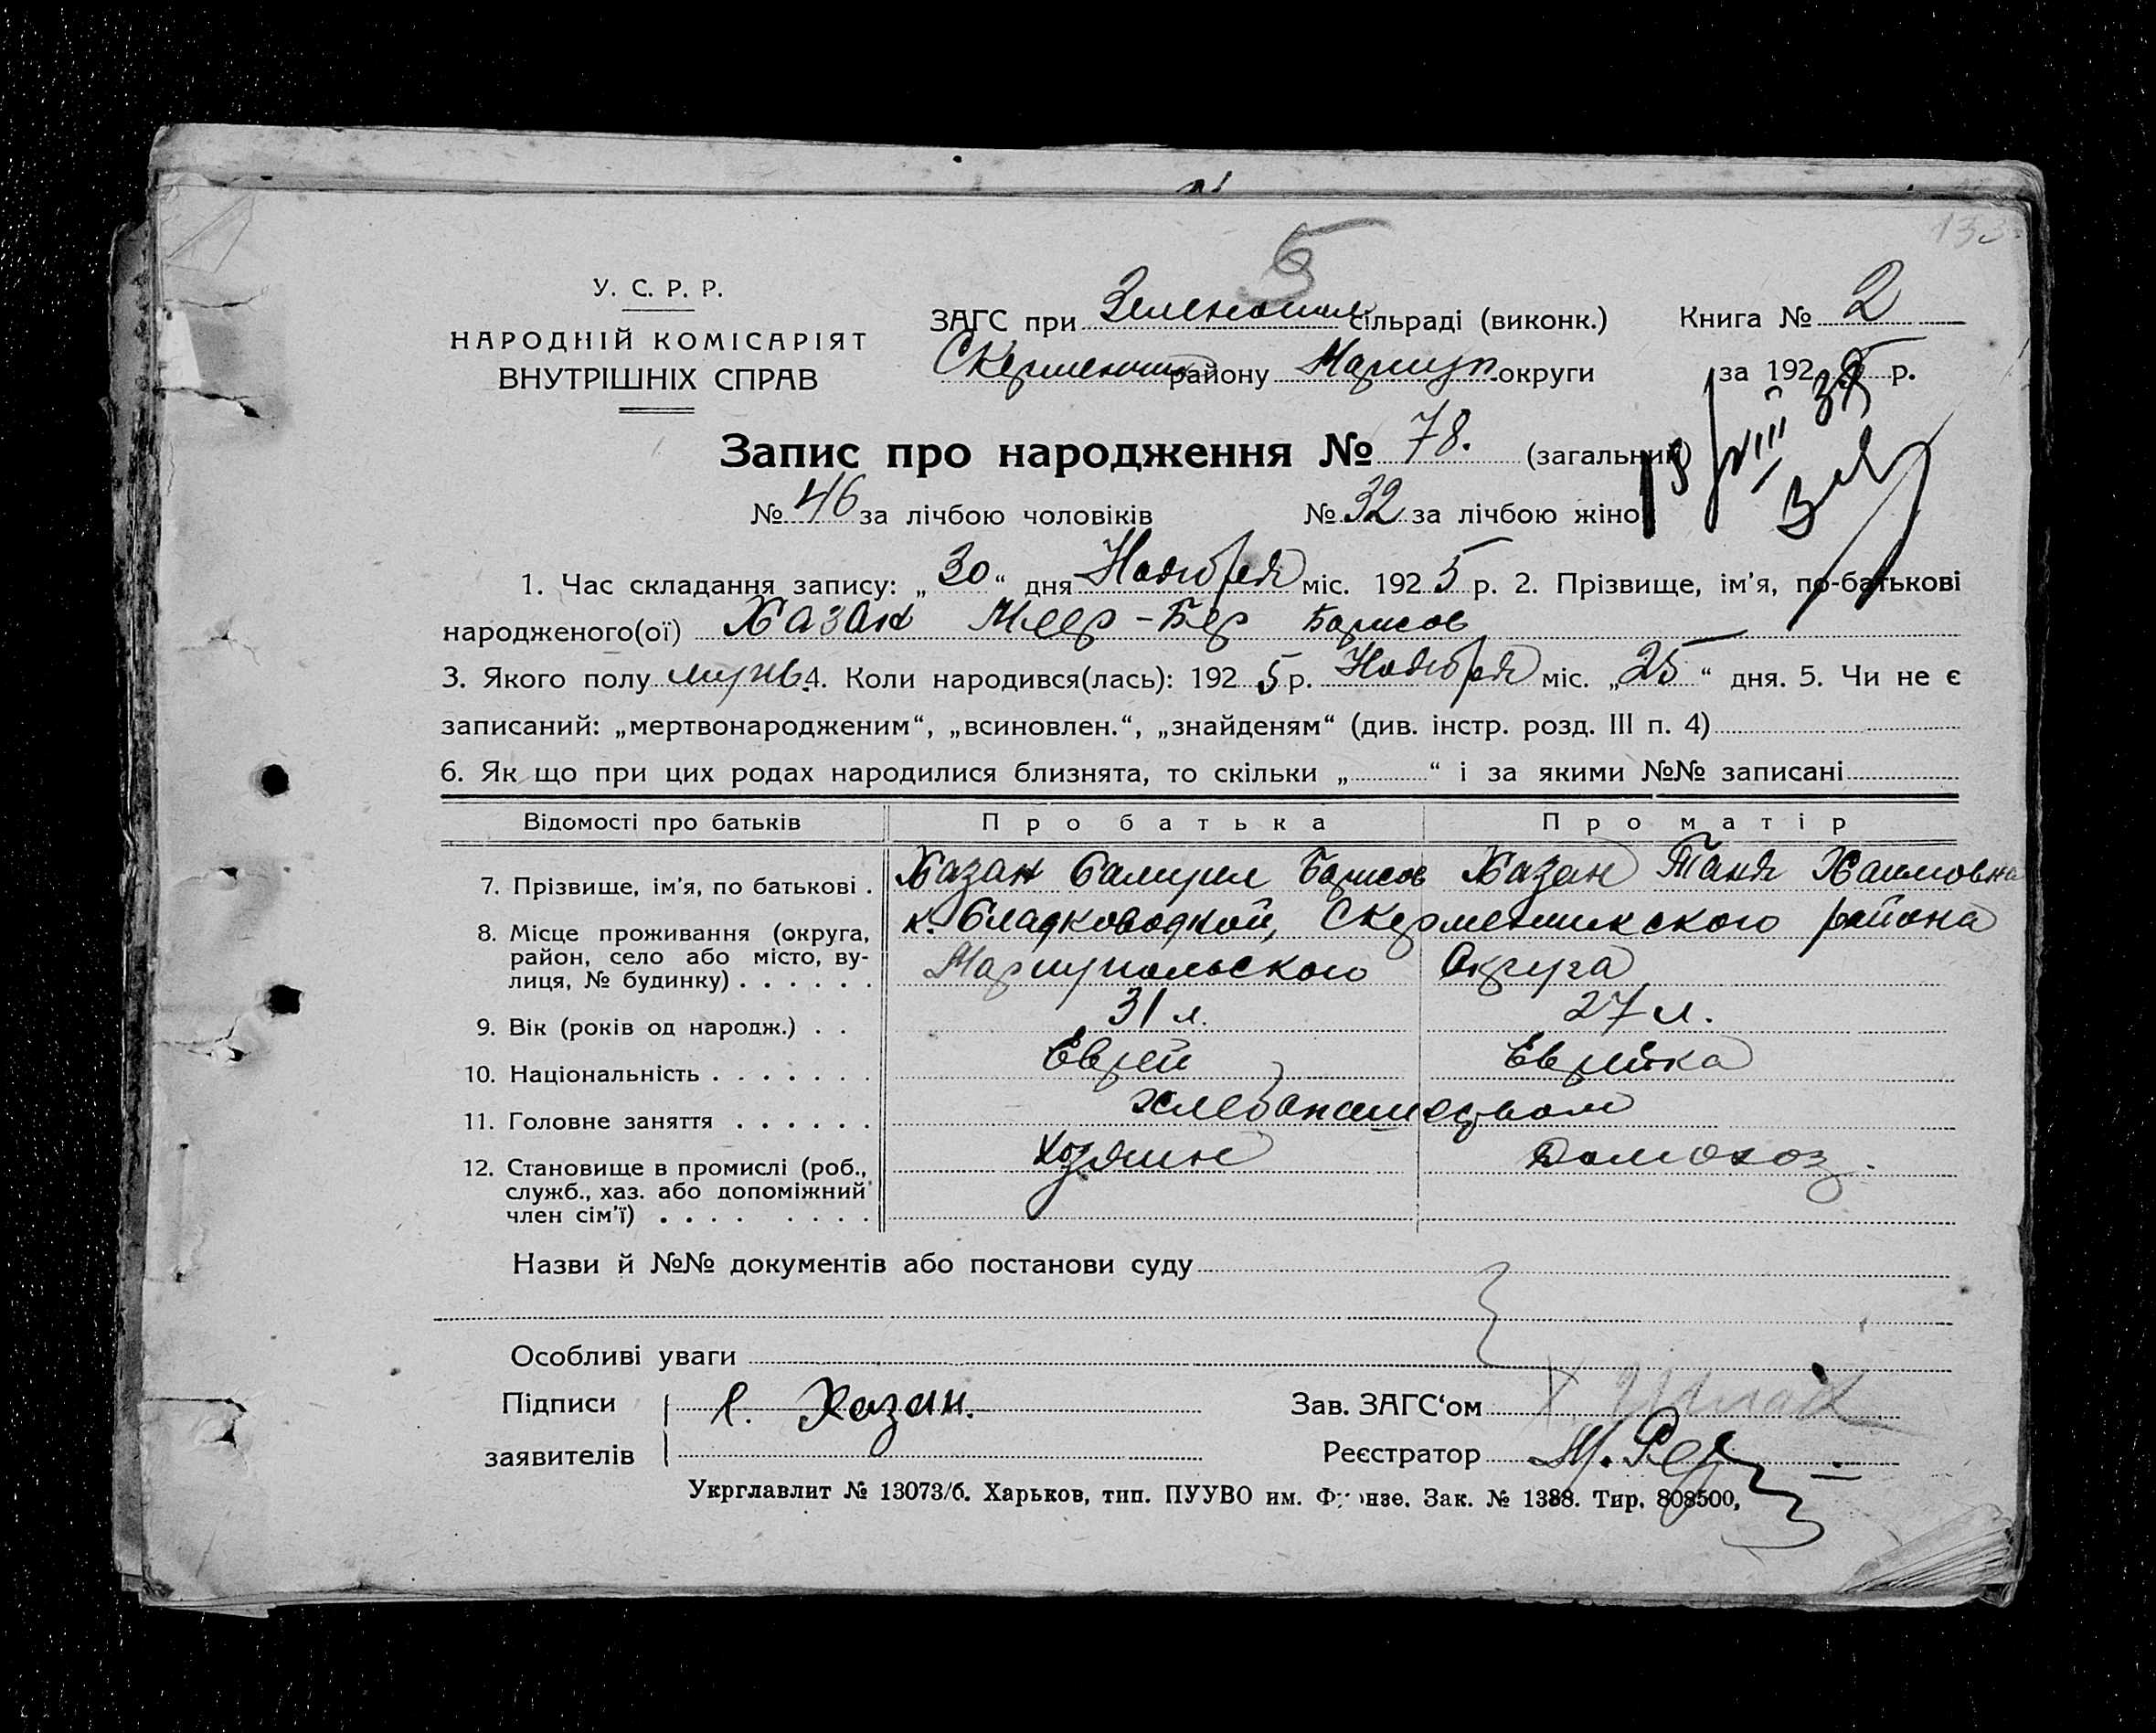 5
У. С. Р. Р.
НАРОДНІЙ КОМІСАРІЯТ
ВНУТРІШНІХ СПРАВ
ЗАГС при Зеленопол. сільраді (виконк.) Книга № 2
району Мариуп. округи за 192 5 р.
Запис про народження № 78. (загальний)
№ 46 за лічбою чоловіків № 32 за лічбою жінок
1. Час складання запису: „30“ дня Ноября міс. 1925 р. 2. Прізвище, ім'я, по-батькові
народженого(ої) Хазан Меер-Бер Борисов
3. Якого полу мужс. 4. Коли народився(лась): 192 5 р. Ноября міс. „25“ дня. 5. Чи не є
записаний: „мертвонародженим“, „всиновлен.“, „знайденям“ (див. інстр. розд. III п. 4)
6. Як що при цих родах народилися близнята, то скільки „ “ і за якими №№ записані
Відомості про батьків Про батька Про матір
7. Прізвише, ім'я, по батькові . Хазан Самуил Борисов Хазан Таня Хаимовна
8. Місце проживання (округа, район, село або місто, вулиця, № будинку) . . . . . . к. Сладководной, Скерменчикского района
Мариупольского Округа
9. Вік (років од народж.) . . 31 л. 27 л.
10. Національність . . . . . . . Еврей Еврейка
11. Головне заняття . . . . . . Хлебопашеством
12. Становище в промислі (роб., служб., хаз. або допоміжний член сім'ї) . . . . . . . . Хозяин Домохоз.
Назви й №№ документів або постанови суду
Особливі уваги
Підписи С. Хазан. Зав. ЗАГС‘ом
заявителів Реєстратор
Укрглавлит № 13073/б. Харьков, тип. ПУУВО им. Фрунзе. Зак. № 1388. Тир. 808500,